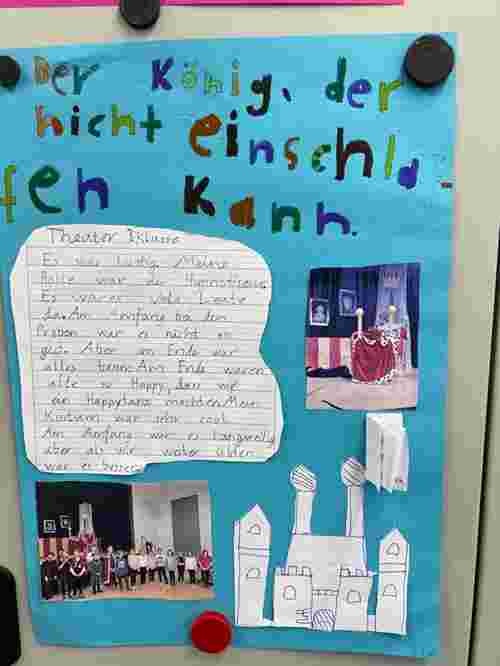 Der König, der
nicht einschla-
fen kann.
Theater Iklasse
Es war lustig. Meine
Rolle war die Hypnotiseurin
Es waren viele Leute
da. Am Anfang bei den
Proben war es nicht so
gut. Aber am Ende war
alles toll. Am Ende waren
alle so Happy, das wir
ein Happytanz machten. Mein
Kostüm war sehr cool.
Am Anfang war es langweilig
aber als wir weiter übten
war es besser